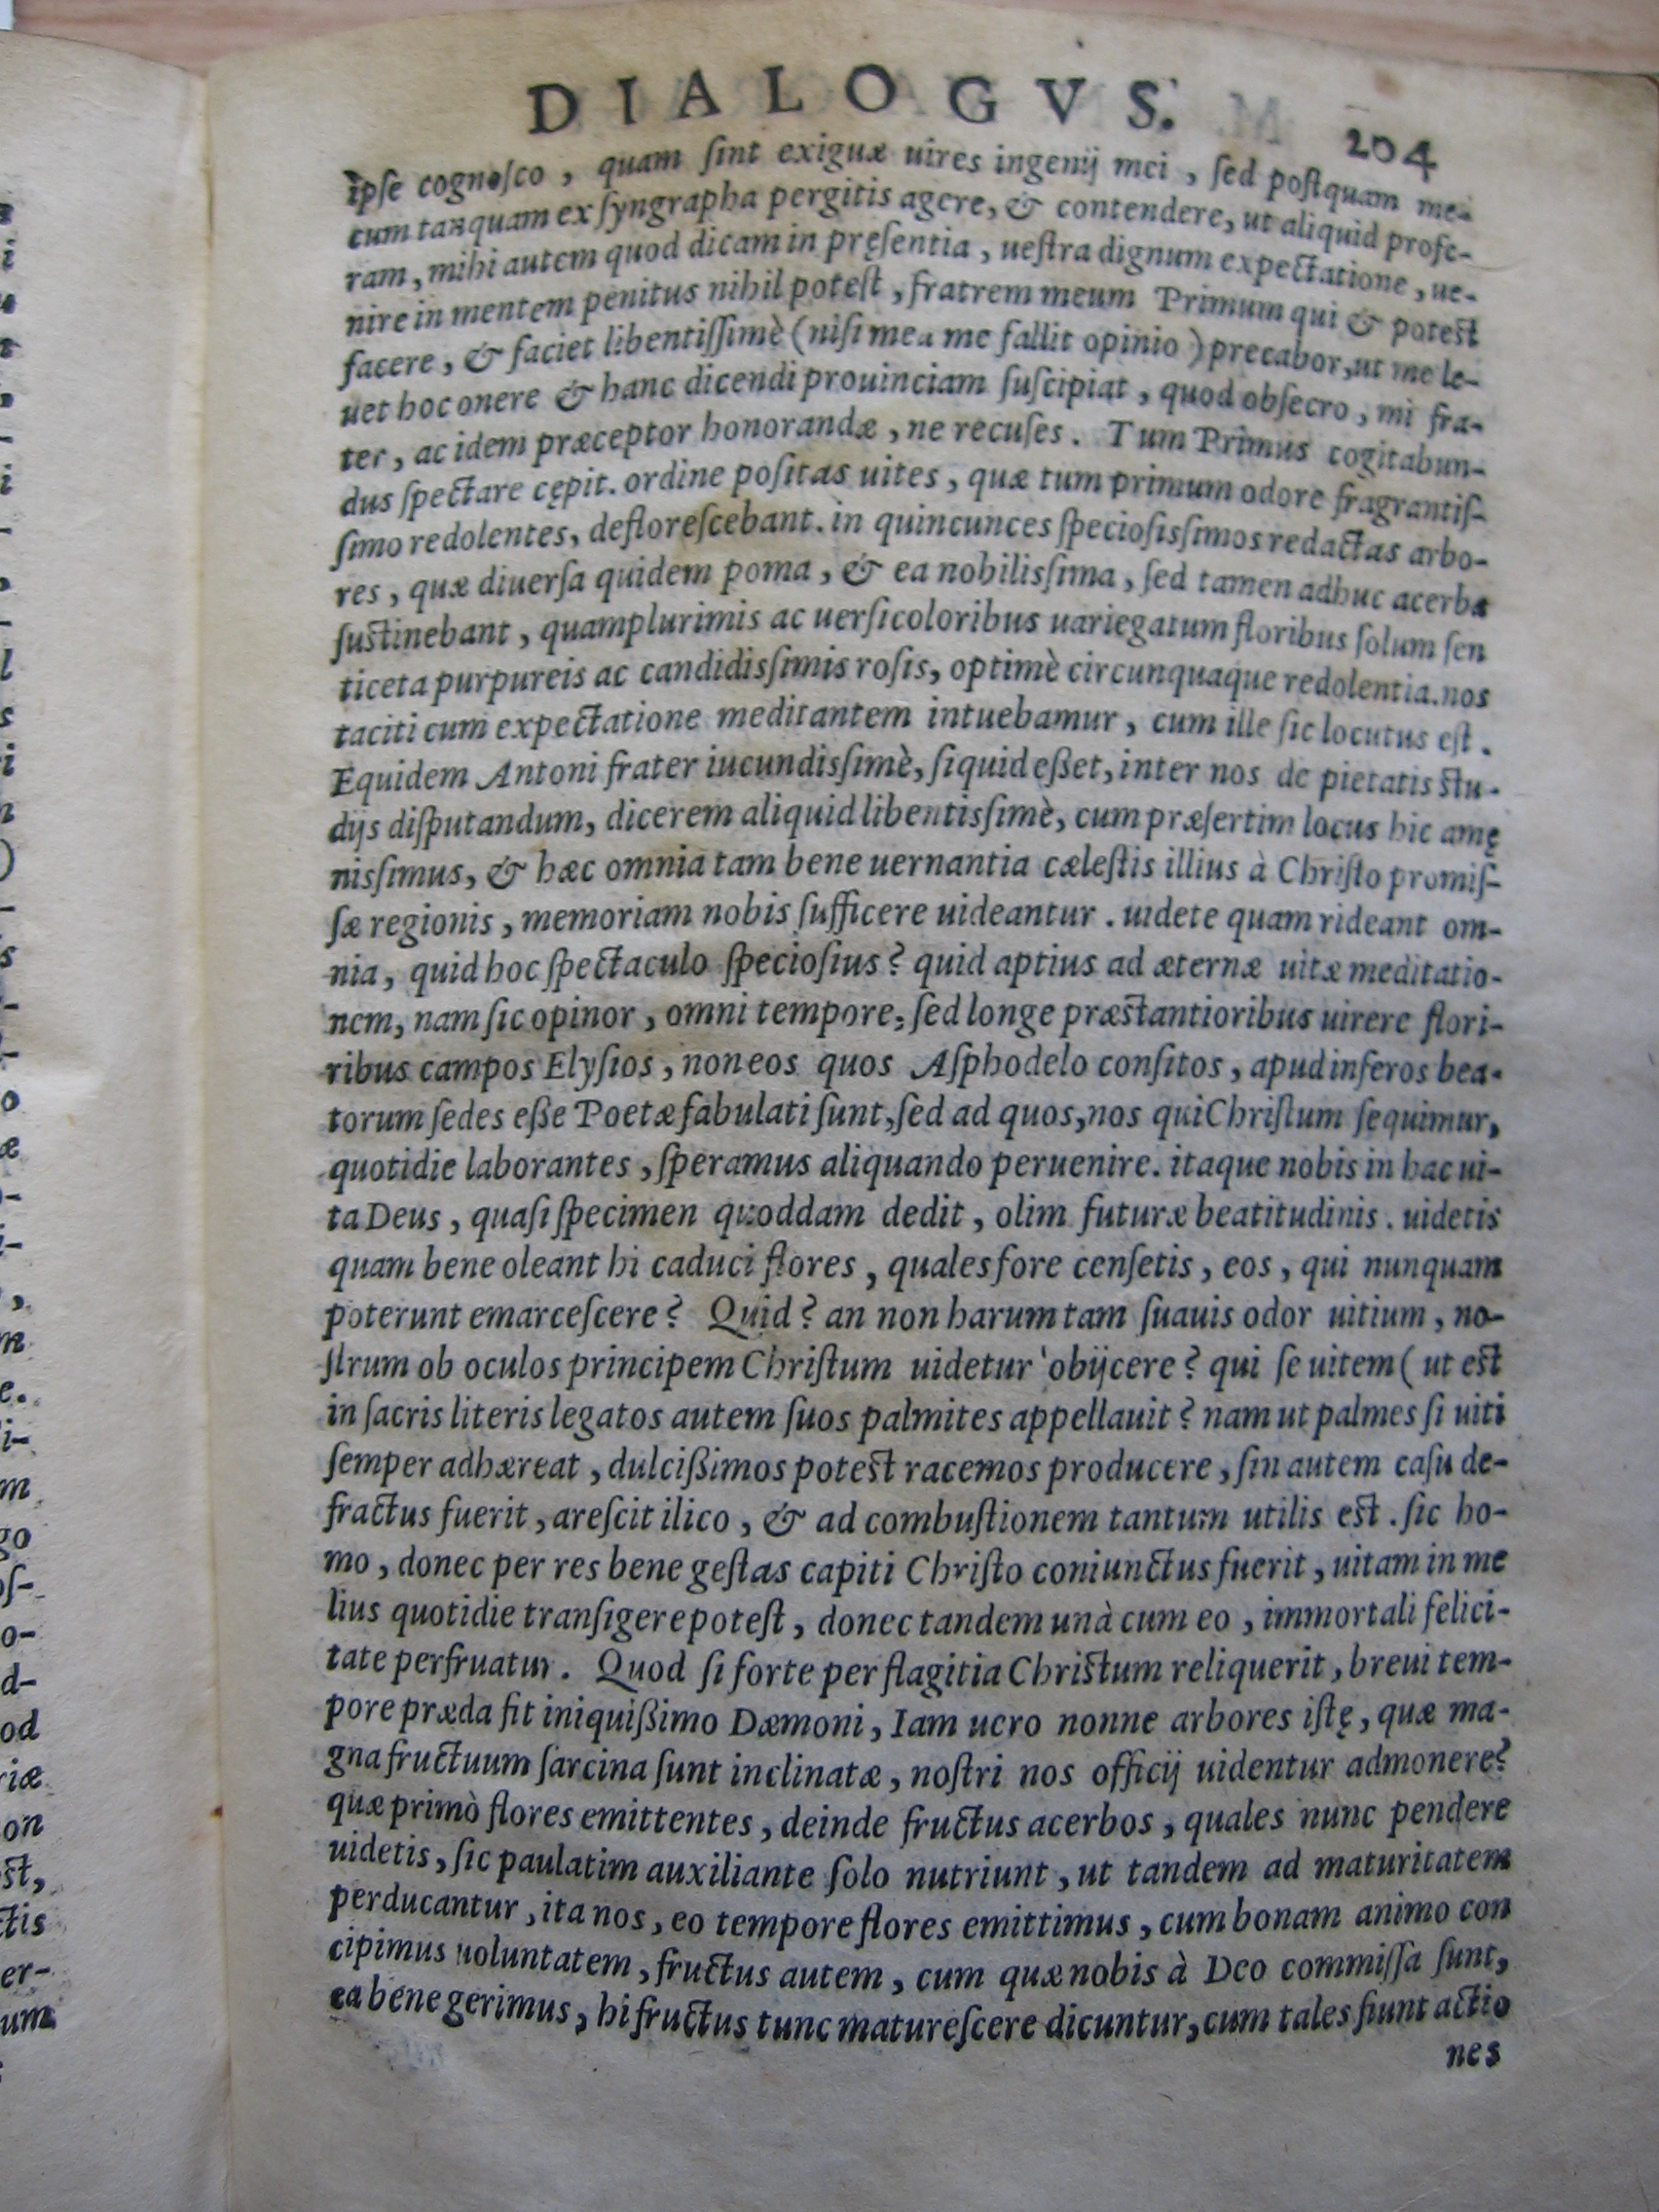 DIALOGVS. 204
ipſe cognoſco, quam ſint exiguæ uires ingenij mei, ſed poſtquam me-
cum tanquam ex ſyngrapha pergitis agere, & contendere, ut aliquid profe-
ram, mihi autem quod dicam in pręſentia, ueſtra dignum expectatione, ue-
nire in mentem penitus nihil poteſt, fratrem meum Primum qui & poteſt
facere, & faciet libentiſſimè (niſi mea me fallit opinio) precabor, ut me le-
uet hoc onere & hanc dicendi prouinciam ſuſcipiat, quod obſecro, mi fra-
ter, ac idem præceptor honorandæ, ne recuſes. Tum Primus cogitabun-
dus ſpectare cępit. ordine poſitas uites, quæ tum primum odore fragrantiſ-
ſimo redolentes, defloreſcebant. in quincunces ſpecioſisſimos redactas arbo-
res, quæ diuerſa quidem poma, & ea nobilisſima, ſed tamen adhuc acerba
ſuſtinebant, quamplurimis ac uerſicoloribus uariegatum floribus ſolum ſen
ticeta purpureis ac candidisſimis roſis, optimè circunquaque redolentia. nos
taciti cum expectatione meditantem intuebamur, cum ille ſic locutus eſt.
Equidem Antoni frater iucundisſimè, ſiquid eßet, inter nos de pietatis ſtu-
dijs diſputandum, dicerem aliquid libentisſimè, cum præſertim locus hic amę
nisſimus, & hæc omnia tam bene uernantia cæleſtis illius à Chriſto promiſ-
ſæ regionis, memoriam nobis ſufficere uideantur. uidete quam rideant om-
nia, quid hoc ſpectaculo ſpecioſius? quid aptius ad æternæ uitæ meditatio-
nem, nam ſic opinor, omni tempore, ſed longe præſtantioribus uirere flori-
ribus campos Elyſios, non eos quos Aſphodelo conſitos, apud inferos bea-
torum ſedes eße Poetæ fabulati ſunt, ſed ad quos, nos qui Chriſtum ſequimur,
quotidie laborantes, ſperamus aliquando peruenire. itaque nobis in hac ui-
ta Deus, quaſi ſpecimen quoddam dedit, olim futuræ beatitudinis. uidetis
quam bene oleant hi caduci flores, quales fore cenſetis, eos, qui nunquam
poterunt emarceſcere? Quid? an non harum tam ſuauis odor uitium, no-
ſtrum ob oculos principem Chriſtum uidetur obijcere? qui ſe uitem (ut eſt
in ſacris literis legatos autem ſuos palmites appellauit? nam ut palmes ſi uiti
ſemper adhæreat, dulcißimos poteſt racemos producere, ſin autem caſu de-
fractus fuerit, areſcit ilico, & ad combuſtionem tantum utilis eſt. ſic ho-
mo, donec per res bene geſtas capiti Chriſto coniunctus fuerit, uitam in me
lius quotidie tranſigere poteſt, donec tandem unà cum eo, immortali felici-
tate perfruatur. Quod ſi forte per flagitia Chriſtum reliquerit, breui tem-
pore præda fit iniquißimo Dæmoni, Iam uero nonne arbores iſtę, quæ ma-
gna fructuum ſarcina ſunt inclinatæ, noſtri nos officij uidentur admonere?
quæ primò flores emittentes, deinde fructus acerbos, quales nunc pendere
uidetis, ſic paulatim auxiliante ſolo nutriunt, ut tandem ad maturitatem
perducantur, ita nos, eo tempore flores emittimus, cum bonam animo con
cipimus uoluntatem, fructus autem, cum quæ nobis à Deo commiſſa ſunt,
ea bene gerimus, hi fructus tunc matureſcere dicuntur, cum tales fiunt actio
nes